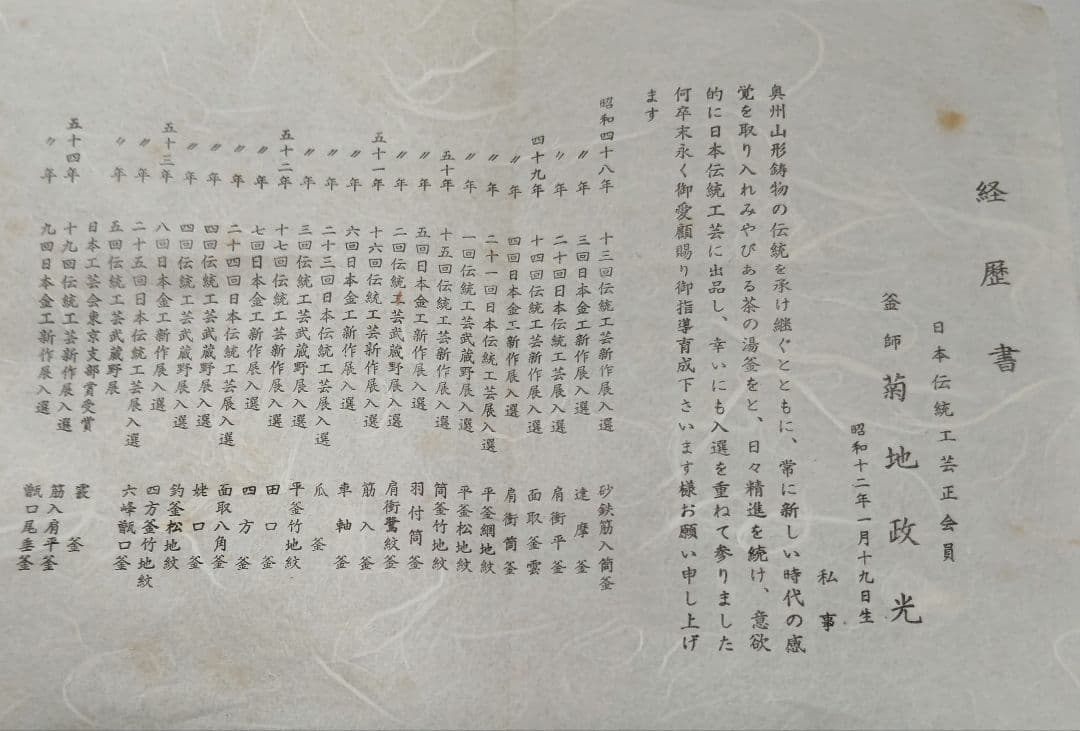 経歴書
日本伝統工芸正会員
釜師 菊地政光
昭和十二年一月十九日生
私事
奥州山形鋳物の伝統を承け継ぐとともに、常に新しい時代の感
覚を取り入れみやびある茶の湯釜をと、日々精進を続け、意欲
的に日本伝統工芸に出品し、幸いにも入選を重ねて参りました
何卒末永く御愛顧賜り御指導育成下さいます様お願い申し上げ
ます
昭和四十八年 十三回伝統工芸新作展入選 砂鉄筋入筒釜
〃年 三回日本金工新作展入選 達摩釜
〃年 二十回日本伝統工芸展入選 肩衝平釜
四十九年 十四回伝統工芸新作展入選 面取釜雲
〃年 四回日本金工新作展入選 肩衝筒釜
〃年 二十一回日本伝統工芸展入選 平釜網地紋
〃年 一回伝統工芸武蔵野展入選 平釜松地紋
五十年 十五回伝統工芸新作展入選 筒釜竹地紋
〃年 五回日本金工新作展入選 羽付筒釜
〃年 二回伝統工芸武蔵野展入選 肩衝鷺紋釜
五十一年 十六回伝統工芸新作展入選 筋入釜
〃年 六回日本金工新作展入選 車軸釜
〃年 二十三回日本伝統工芸展入選 瓜釜
〃年 三回伝統工芸武蔵野展入選 平釜竹地紋
五十二年 十七回伝統工芸新作展入選 田口釜
〃年 七回日本金工新作展入選 四方釜
〃年 二十四回日本伝統工芸展入選 面取八角釜
〃年 四回伝統工芸武蔵野展入選 姥口釜
〃年 四回伝統工芸武蔵野展入選 釣釜松地紋
五十三年 八回日本金工新作展入選 四方釜竹地紋
〃年 二十五回日本伝統工芸展入選 六峰甑口釜
〃年 五回伝統工芸武蔵野展
日本工芸会東京支部賞受賞 雲釜
五十四年 十九回伝統工芸新作展入選 筋入肩平釜
〃年 九回日本金工新作展入選 甑口尾垂釜